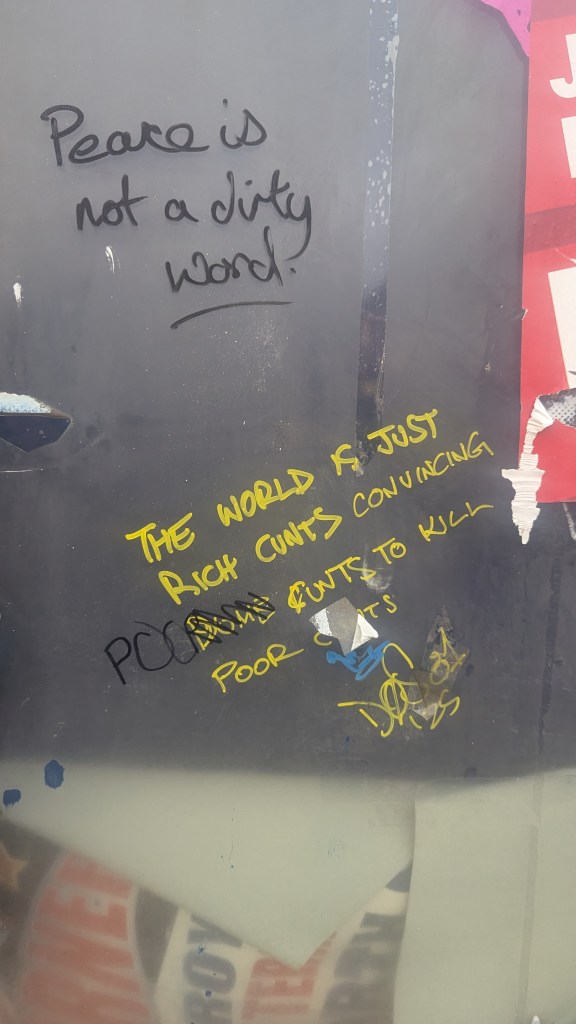 Peace is
not a dirty
word.
THE WORLD IS JUST
RICH CUNTS CONVINCING
CUNTS TO KILL
POOR